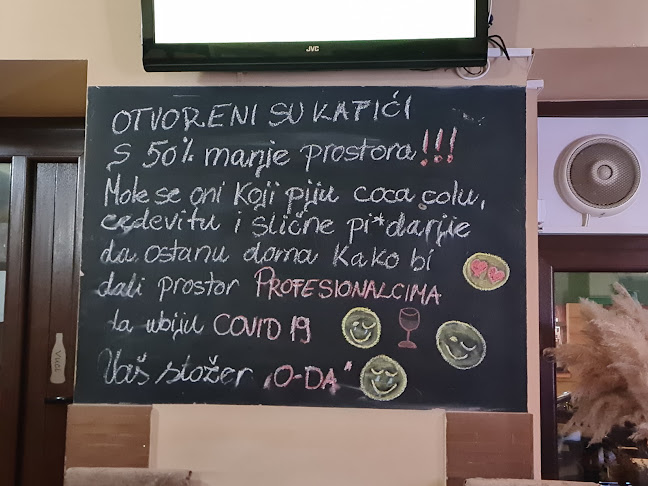 JVC
OTVORENI SU KAFIĆI
S 50% manje prostora!!!
Mole se oni Koji piju coca colu,
cedevitu i slične pi*darije
da ostanu doma Kako bi
dali prostor PROFESIONALCIMA
da ubiju COVID 19
Vaš stožer „O-DA"
VUCI